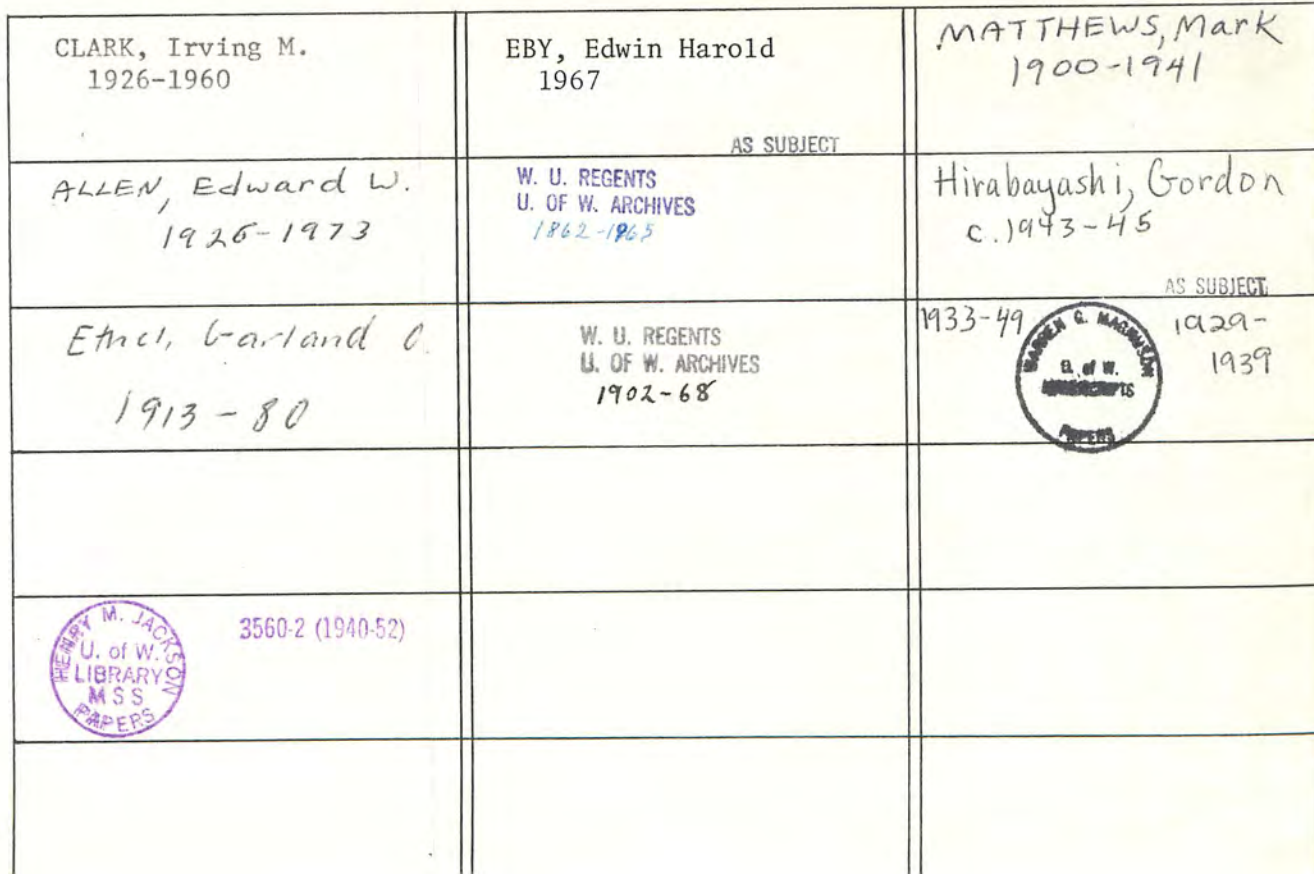 CLARK, Irving M.
1926-1960
EBY, Edwin Harold
1967
AS SUBJECT
MATTHEWS, Mark
1900-1941
ALLEN, Edward W.
1926-1973
W. U. REGENTS
U. OF W. ARCHIVES
1862-1965
Hirabayashi, Gordon
c.1943-45
AS SUBJECT
Ethel, Garland O.
1913-80
W. U. REGENTS
U. OF W. ARCHIVES
1902-68
1933-49
WARREN G. MAGNUSON
U. of W.
MANUSCRIPTS
PAPERS
1929-
1939
HENRY M. JACKSON
U. of W.
LIBRARY
MSS
PAPERS
3560-2 (1940-52)